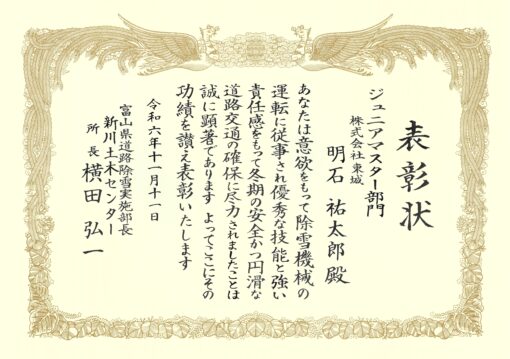 表彰状
ジュニアマスター部門
株式会社東城
明石 祐太郎 殿
あなたは意欲をもって除雪機械の
運転に従事され優秀な技能と強い
責任感をもって冬期の安全かつ円滑な
道路交通の確保に尽力されましたことは
誠に顕著であります よってここにその
功績を讃え表彰いたします
令和六年十一月十一日
富山県道路除雪実施部長
新川土木センター
所長 横田 弘一